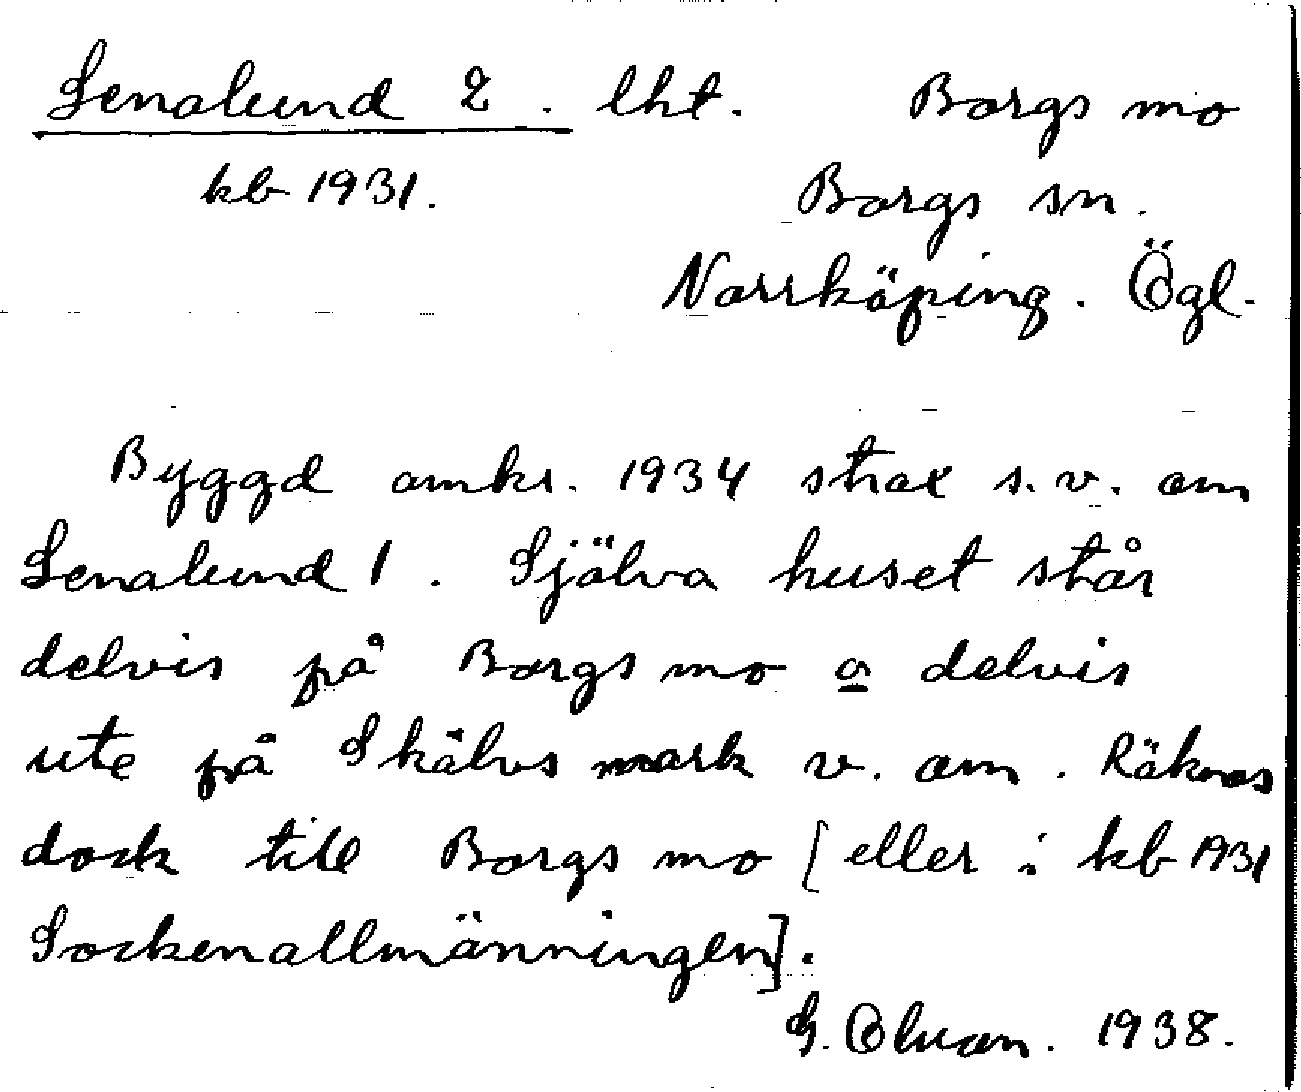 Lenalund 2. lht. Borgs mo
kb 1931. Borgs sn.
Norrköping. Ögl.
Byggd omkr. 1934 strax s.v. om
Lenalund 1. Själva huset står
delvis på Borgs mo o delvis
ute på Skälvs mark v. om. Räknas
dock till Borgs mo [eller i kb 1931
Sockenallmänningen].
G. 1938.